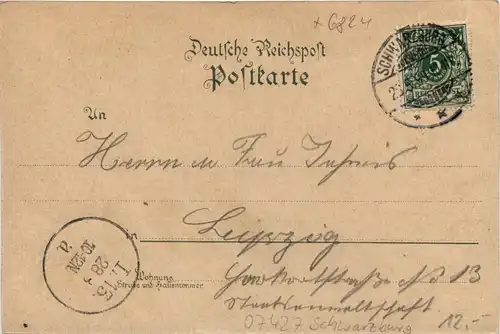 x 6824
Deutsche Reichspost
Postkarte
SCHWARZBURG
5
An
Herrn u Frau
in
Leipzig
Wohnung
Straße und Hausnummer
Harkortstraße No 13
Staatsanwaltschaft
07427 Schwarzburg
12.-